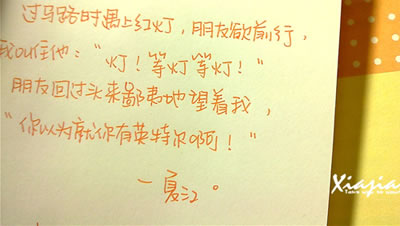 过马路时遇上红灯，朋友欲前行，
我叫住他：“灯！等灯等灯！”
朋友回过头来鄙夷地望着我，
“你以为就你有英特尔啊！”
一夏江。
Xiajia